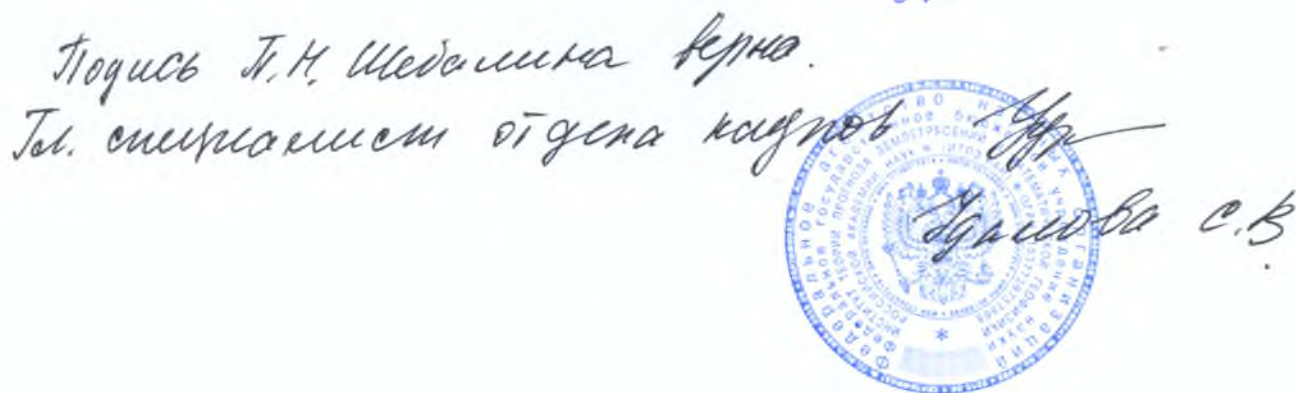 Подись П.Н. Шебалина верна.
Гл. специалист отдела кадров
Удалова С.В.
Федеральное агентство научных организаций
Федеральное государственное бюджетное учреждение науки
Институт теории прогноза землетрясений и математической геофизики
Российской академии наук